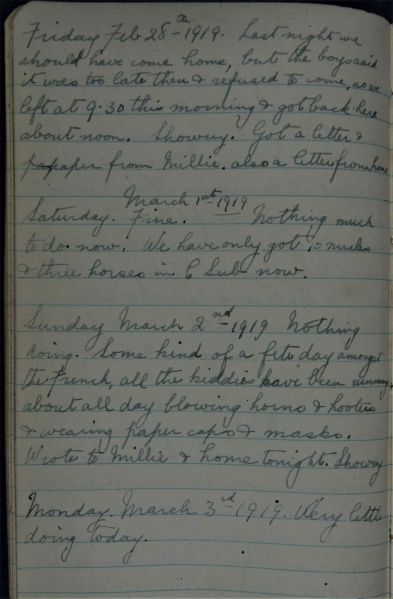 Friday Feb 28th 1919. Last night we
should have come home, but the boys said
it was too late then & refused to come, so we
left at 9.30 this morning & got back here
about noon. Showery. Got a letter &
paper from Millie. also a letter from home
March 1st 1919
Saturday. Fine. Nothing much
to do now. We have only got 10 mules
& three horses in C Sub now.
Sunday March 2nd 1919 Nothing
doing. Some kind of a fete day amongst
the French, all the kiddies have been running
about all day blowing horns & hooters
& wearing paper caps & masks.
Wrote to Millie & home tonight. Showery
Monday. March 3rd 1919. Very little
doing today.